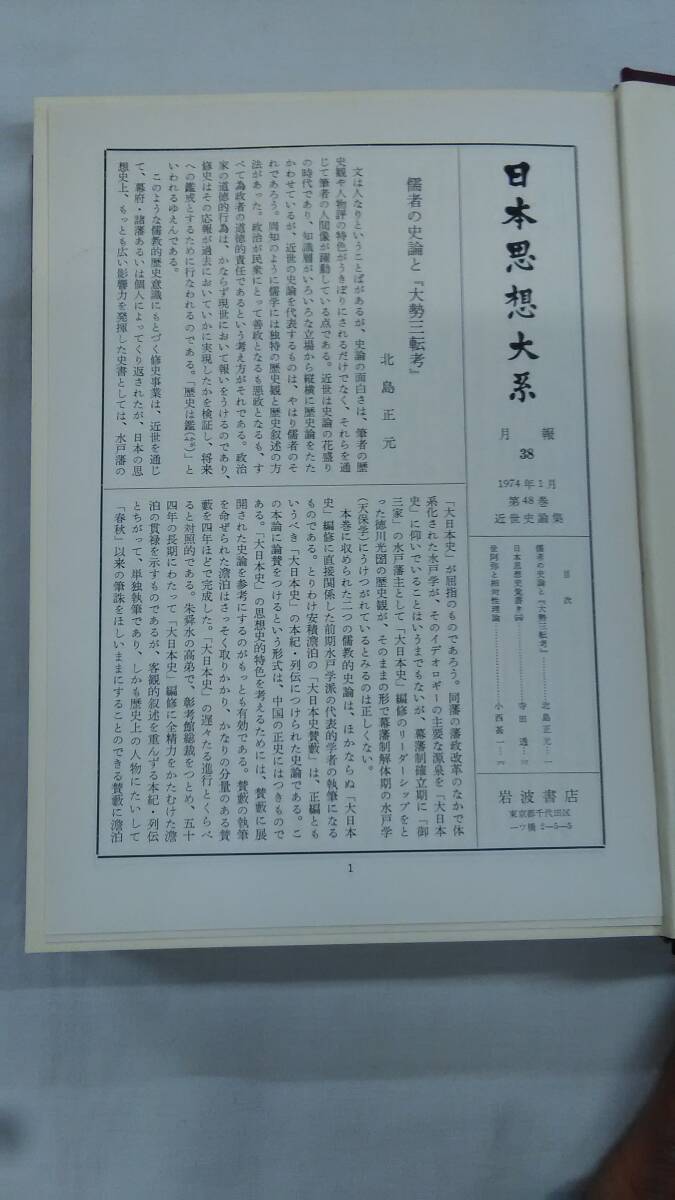 日本思想大系
月報
38
1974年1月
第48巻
近世史論集
目次
儒者の史論と『大勢三転考』……北島正元…一
日本思想史覚書き㈣……寺田透…
世阿弥と相対性理論……小西甚一…
岩波書店
東京都千代田区
一ツ橋2-5-5
儒者の史論と『大勢三転考』
北島正元
文は人なりということばがあるが、史論の面白さは、筆者の歴
史観や人物評の特色がうきぼりにされるだけでなく、それらを通
じて筆者の人間像が躍動している点である。近世は史論の花盛り
の時代であり、知識層がいろいろな立場から縦横に歴史論をたた
かわせているが、近世の史論を代表するものは、やはり儒者のそ
れであろう。周知のように儒学には独特の歴史観と歴史叙述の方
法があった。政治が民衆にとって善政となるも悪政となるも、す
べて為政者の道徳的責任であるという考え方がそれである。政治
家の道徳的行為は、かならず現世において報いをうけるのであり、
修史はその応報が過去においていかに実現したかを検証し、将来
への鑑戒とするために行なわれるのである。「歴史は鑑(かがみ)」と
いわれるゆえんである。
このような儒教的歴史意識にもとづく修史事業は、近世を通じ
て、幕府・諸藩あるいは個人によってくり返されたが、日本の思
想史上、もっとも広い影響力を発揮した史書としては、水戸藩の
「大日本史」が屈指のものであろう。同藩の藩政改革のなかで体
系化された水戸学が、そのイデオロギーの主要な源泉を「大日本
史」に仰いでいることはいうまでもないが、幕藩制確立期に「御
三家」の水戸藩主として「大日本史」編修のリーダーシップをと
った徳川光圀の歴史観が、そのままの形で幕藩制解体期の水戸学
(天保学)にうけつがれているとみるのは正しくない。
本巻に収められた二つの儒教的史論は、ほかならぬ「大日本
史」編修に直接関係した前期水戸学派の代表的学者の執筆になる
ものである。とりわけ安積澹泊の「大日本史賛藪」は、正編とも
いうべき「大日本史」の本紀・列伝につけられた史論である。こ
の本論に論賛をつけるという形式は、中国の正史にはつきもので
ある。「大日本史」の思想史的特色を考えるためには、賛藪に展
開された史論を参考にするのがもっとも有効である。賛藪の執筆
を命ぜられた澹泊はさっそく取りかかり、かなりの分量のある賛
藪を四年ほどで完成した。「大日本史」の遅々たる進行とくらべ
ると対照的である。朱舜水の高弟で、彰考館総裁をつとめ、五十
四年の長期にわたって「大日本史」編修に全精力をかたむけた澹
泊の貫禄を示すものであるが、客観的叙述を重んずる本紀・列伝
とちがって、単独執筆であり、しかも歴史上の人物にたいして
「春秋」以来の筆誅をほしいままにすることのできる賛藪に澹泊
1